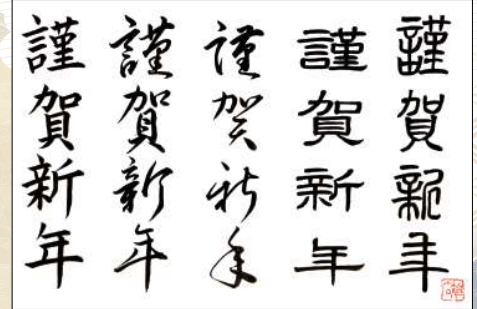 謹賀新年
謹賀新年
謹賀新年
謹賀新年
謹賀新年